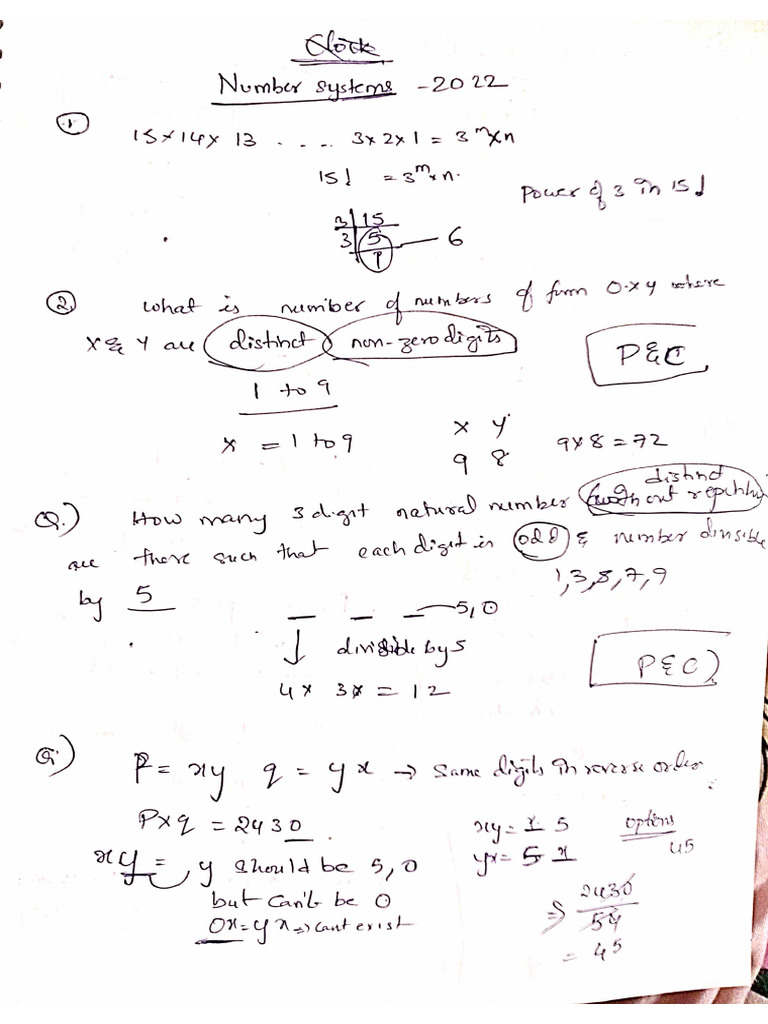 Clock
Number systems - 2022
① 15×14×13 ..... 3×2×1 = 3^m×n
15! = 3^m×n.
Power of 3 in 15!
3|15
3|5 — 6
1
② what is number of numbers of form 0.xy where
x & y are distinct non-zero digits
P&C
1 to 9
x = 1 to 9
x y
9 8
9×8 = 72
distinct
Q.) How many 3 digit natural number without repetition
are there such that each digit is odd & number divisible
1,3,5,7,9
by 5
_ _ _ 5,0
↓ divisible by 5
P&C
4× 3× = 12
Q.) P = xy q = yx → same digits in reverse order
P×q = 2430
xy = y should be 5,0
but can't be 0
0x = yx ⇒ cant exist
xy = x 5
yx = 5 x
options
45
⇒ 2430
54
= 45